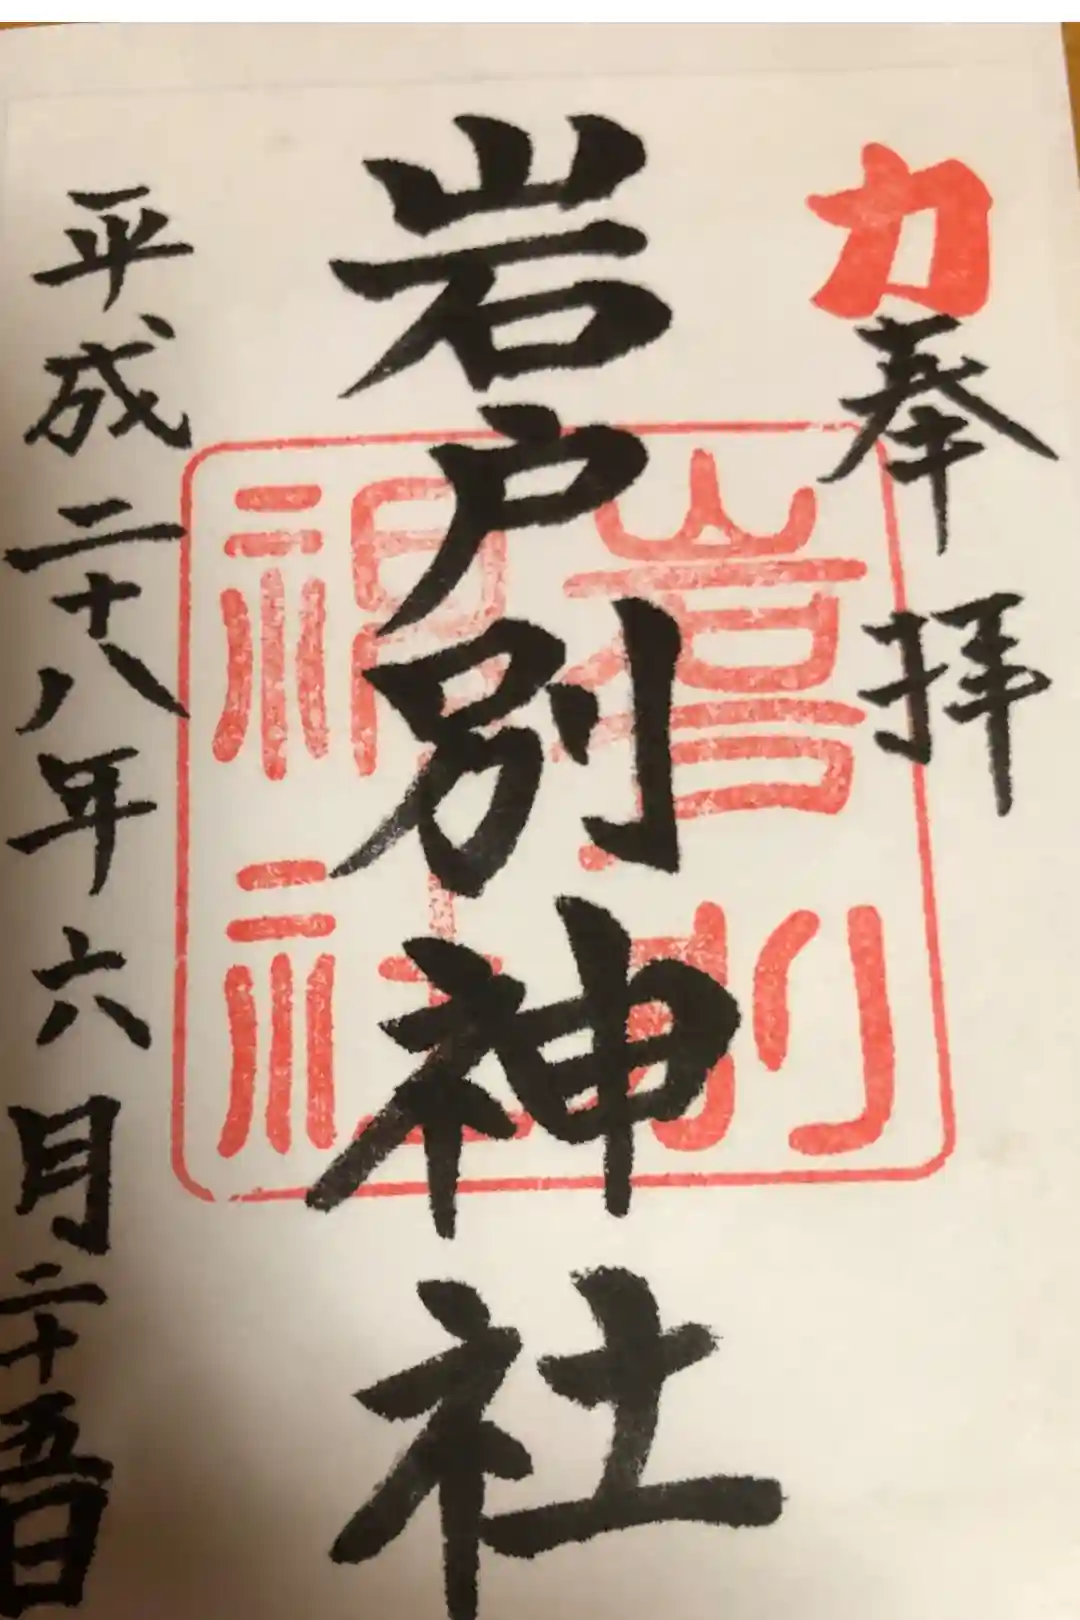 力
奉拝
岩戸別神社
平成二十八年六月二十五日